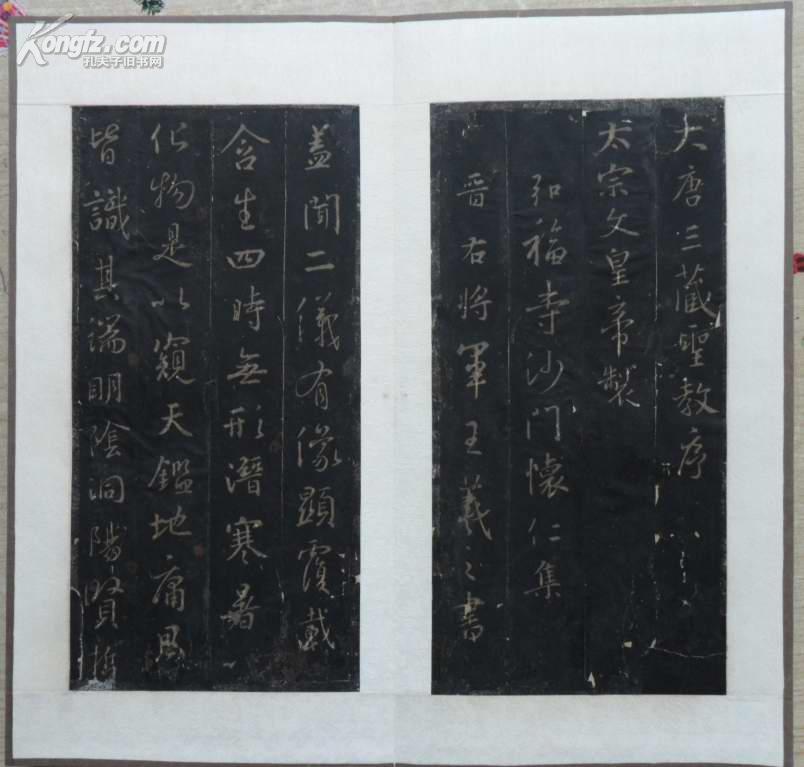 大唐三藏聖教序
太宗文皇帝製
弘福寺沙門懷仁集
晋右將軍王羲之書
蓋聞二儀有像顯覆載
含生四時無形潛寒暑
化物是以窺天鑑地庸愚
皆識其端明陰洞陽賢哲
Kongfz.com
孔夫子旧书网